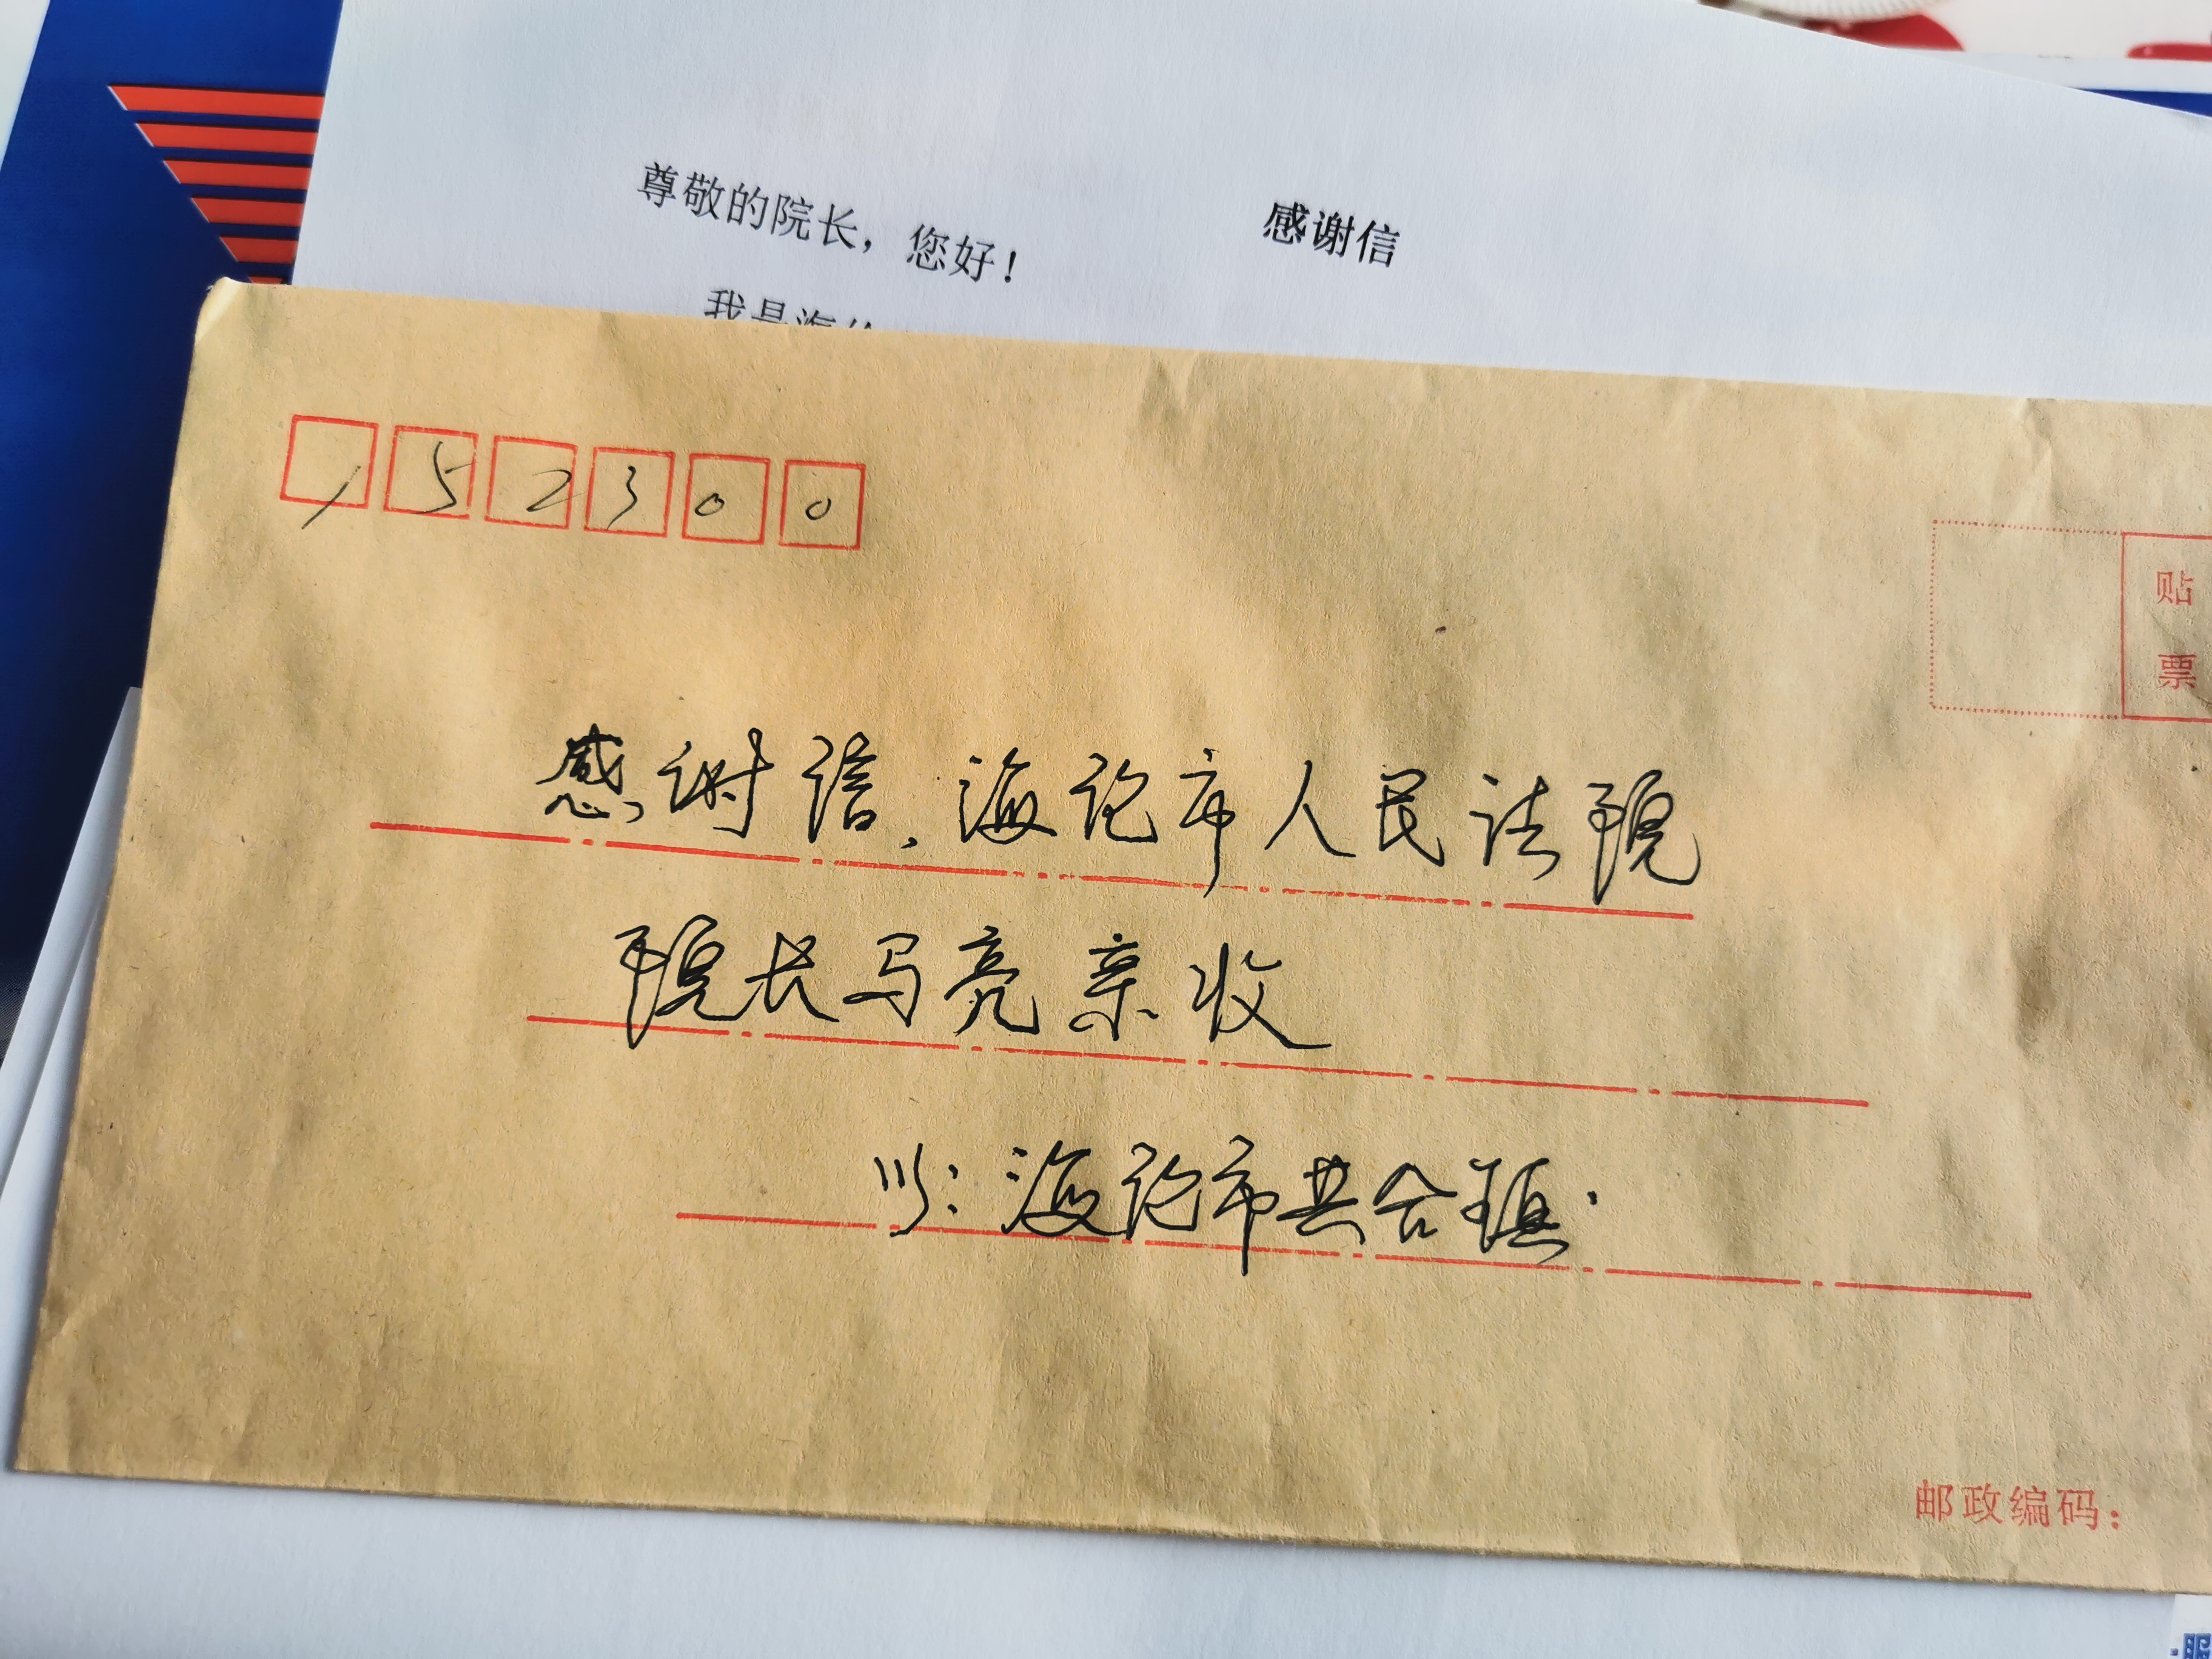 感谢信
尊敬的院长，您好！
我是海伦
152300
贴
票
感谢信，海伦市人民法院
院长马亮亲收
海伦市共合镇.
邮政编码：
服